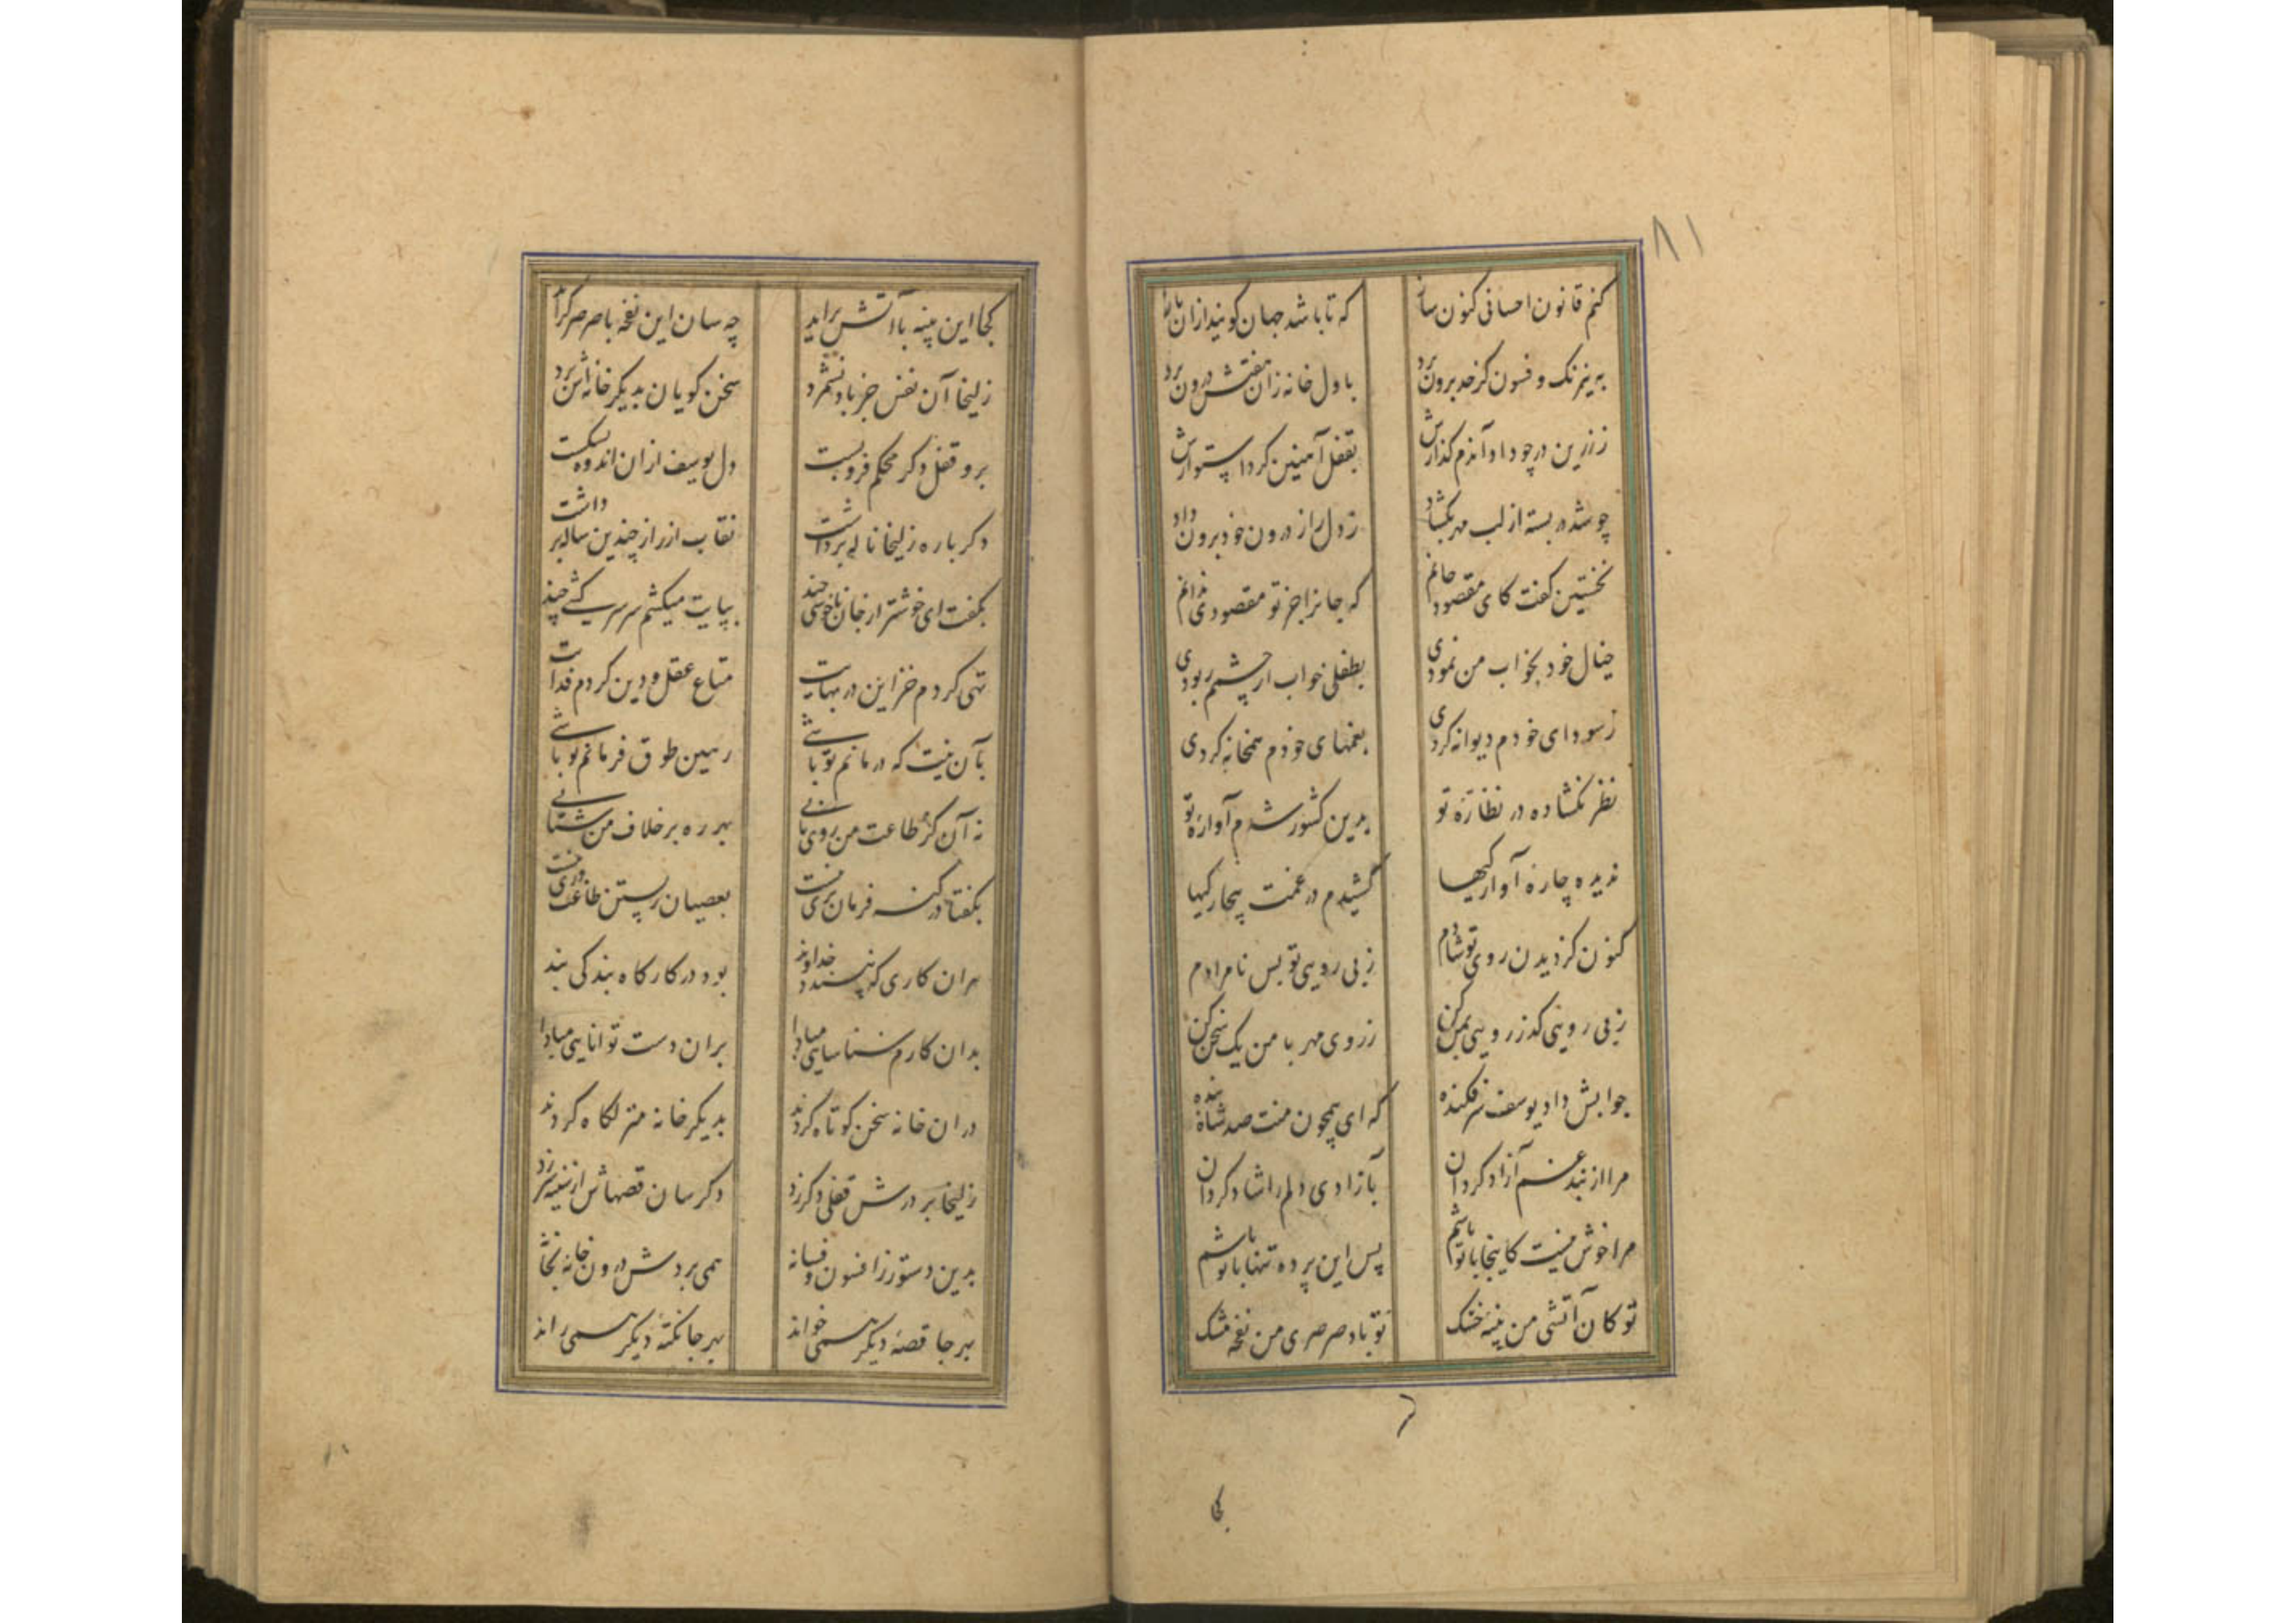 ۸۱
کنم قانون احسانی کنون ساز که تا باشد جهان کویند ازان باز
به نیرنک و فسون کز حد برون برد باول خانه زان هفتش درون برد
ز زرین در چو داد آندم کذارش بقفل آهنین کرد استوارش
چو شد در بسته از لب مهر بکشاد ز دل راز درون خود برون داد
نخستین کفت کای مقصود جانم که جانرا جز تو مقصودی ندانم
خیال خود بخواب من نمودی بطفلی خواب از چشمم ربودی
ز سودای خودم دیوانه کردی بغمهای خودم همخانه کردی
نظر نکشاده در نظارهٔ تو بدین کشور شدم آوارهٔ تو
ندیده چاره آوارکیها کشیدم در غمت بیچارکیها
کنون کز دیدن روی تو شادم ز بی رویی تو بس نامرادم
ز بی رویی کذر رویی بمن کن ز روی مهر با من یک سخن کن
جوابش داد یوسف سر فکنده که ای همچون منت صد شاه بنده
مرا از بند غم آزاد کردان بآزادی دلم را شاد کردان
مرا خوش نیست کاینجا با تو باشم پس این پرده تنها با تو باشم
تو کان آتشی من پنبهٔ خشک تو باد صرصری من نفحه مشک
کجا
کجا این پنبه با آتش براید چه سان این نفحه با صرصر کراید
زلیخا آن نفس جز باد نشمرد سخن کویان بدیکر خانه اش برد
برو قفل دکر محکم فرو بست دل یوسف ازان اندوه بشکست
دکر باره زلیخا ناله برداشت نقاب از راز چندین ساله برداشت
بکفت ای خوشتر از جان ناخوشی چند بپایت میکشم سر سرکشی چند
تهی کردم خزاین در بهایت متاع عقل و دین کردم فدایت
بآن نیت که درمانم تو باشی رهین طوق فرمانم تو باشی
نه آن کز طاعت من روی تابی بهر ره بر خلاف من شتابی
بکفتا در کنه فرمان بری نیست بعصیان زیستن طاعت وری نیست
هر ان کاری که نپسندد خداوند بود در کارکاه بندکی بند
بدان کارم شناسایی مبادا بران دست توانایی مبادا
دران خانه سخن کوتاه کردند بدیکر خانه منزلکاه کردند
زلیخا بر درش قفلی دکر زد دکر سان قصهاش از سینه سر زد
بدین دستور از افسون و فسانه همی بردش درون خانه بخانه
بهر جا قصهٔ دیکر همی خواند بهر جا نکتهٔ دیکر همی راند